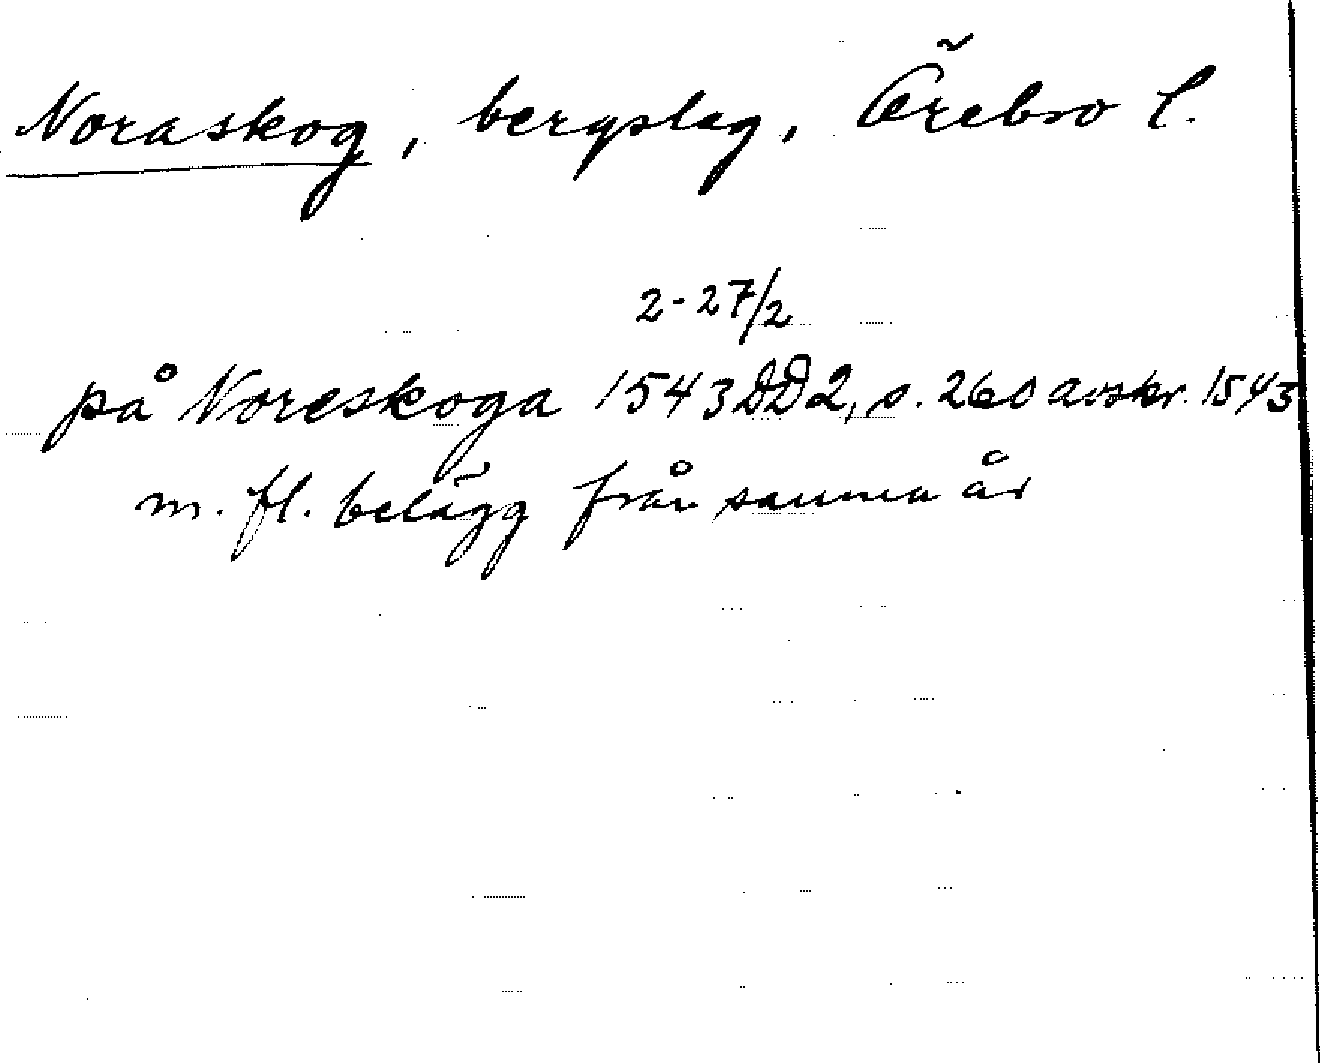 Noraskog, bergslag, Örebro l.
2-27/2
på Noreskoga 1543 DD2, s. 260 avskr. 1543
m. fl. belägg från samma år